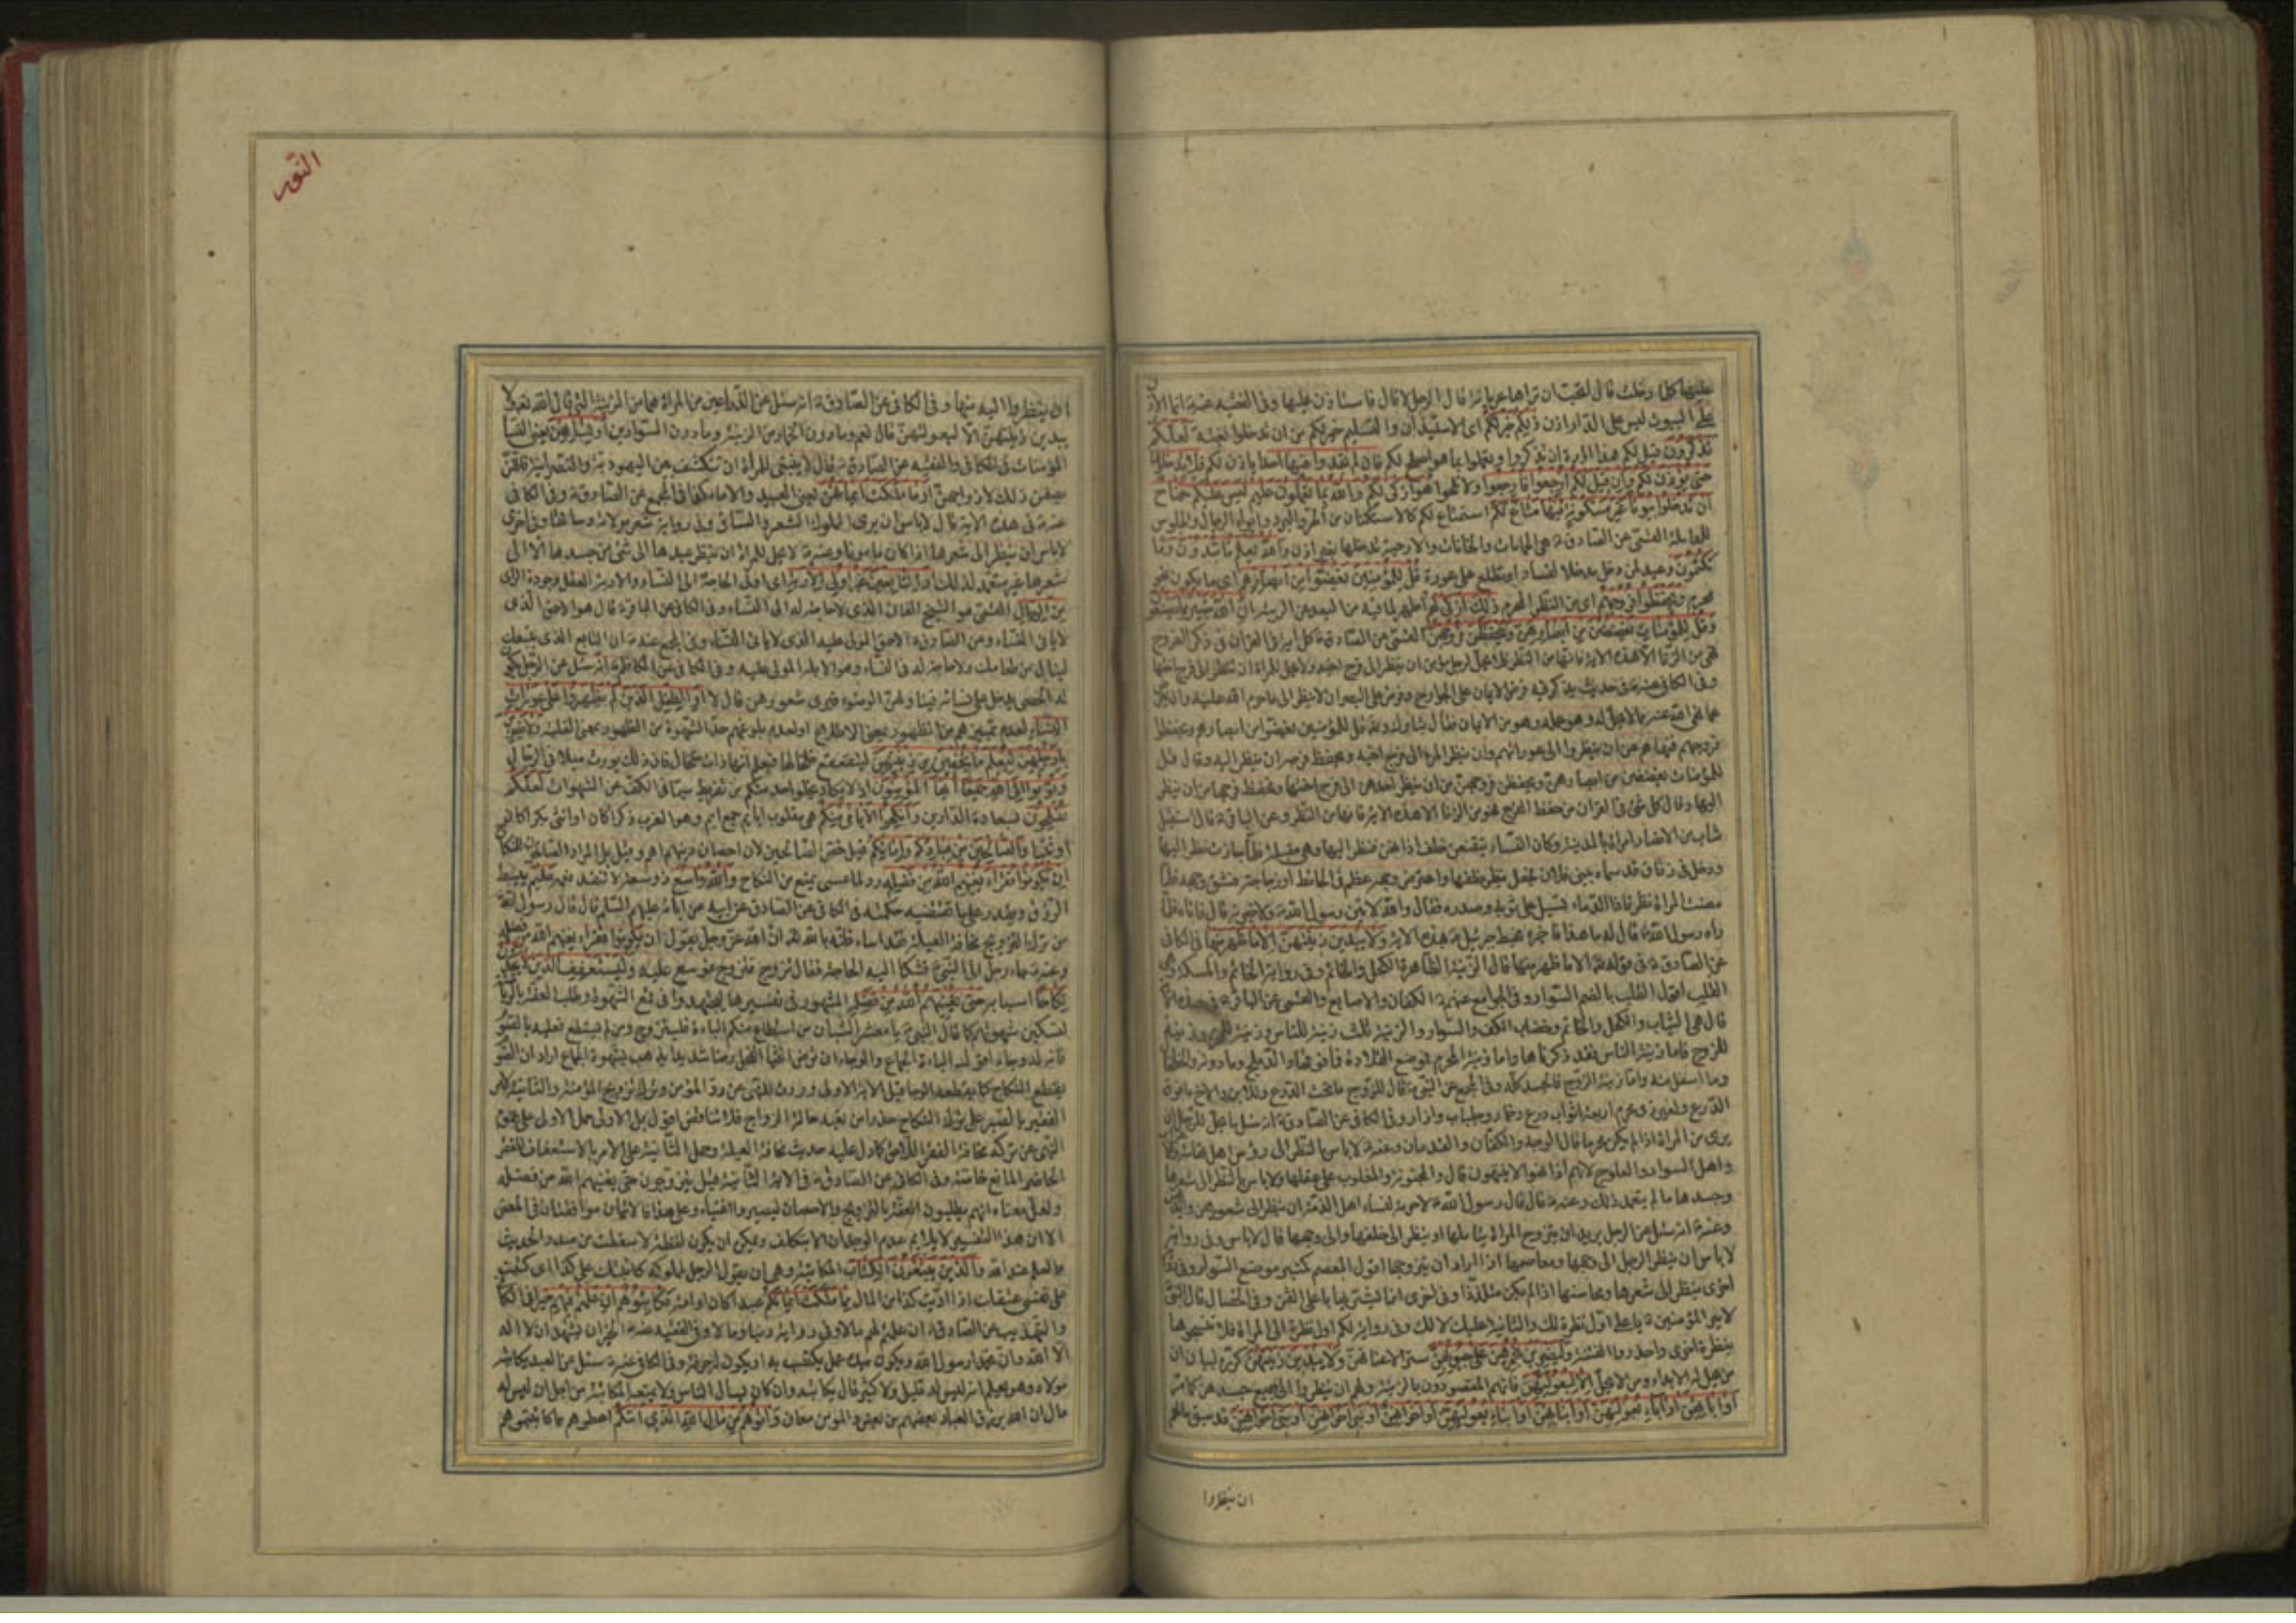 عليها كلما دخلت قال اتحب ان تراها عريانة قال الرجل لا قال فاستاذن عليها وفى الفقيه عنه ع انما الاذن
على البيوت ليس على الدار اذن ذلكم خير لكم اى الاستيذان والتسليم خير لكم من ان تدخلوا بغتة لعلكم
تذكرون قيل لكم هذا ارادة ان تذكروا وتعملوا بما هو اصلح لكم فان لم تجدوا فيها احدا ياذن لكم فلا تدخلوها
حتى يؤذن لكم وان قيل لكم ارجعوا فارجعوا ولا تلحوا هو ازكى لكم والله بما تعملون عليم ليس عليكم جناح
ان تدخلوا بيوتا غير مسكونة فيها متاع لكم استمتاع لكم كالاستكنان من الحر والبرد وايواء الرحال والجلوس
للمعاملة القمى عن الصادق ع هى الحمامات والخانات والارحية تدخلها بغير اذن والله يعلم ما تبدون وما
تكتمون وعيد لمن دخل مدخلا لفساد او تطلع على عورة قل للمؤمنين يغضوا من ابصارهم اى ما يكون نحو
محرم ويحفظوا فروجهم اى من النظر المحرم ذلك ازكى لهم اطهر لما فيه من البعد عن الريبة ان الله خبير بما يصنعون
وقل للمؤمنات يغضضن من ابصارهن ويحفظن فروجهن القمى عن الصادق ع كل اية فى القران فى ذكر الفروج
فهى من الزنا الا هذه الاية فانها من النظر فلا يحل لرجل مؤمن ان ينظر الى فرج اخيه ولا يحل للمراة ان تنظر الى فرج اختها
وفى الكافى عنه ع فى حديث يذكر فيه فرض الايمان على الجوارح وفرض على البصر ان لا ينظر الى ما حرم الله عليه وان يعرض
عما نهى الله عنه مما لا يحل له وهو عمله وهو من الايمان فقال تبارك وتعالى قل للمؤمنين يغضوا من ابصارهم ويحفظوا
فروجهم فنهاهم عن ان ينظروا الى عوراتهم وان ينظر المرء الى فرج اخيه ويحفظ فرجه ان ينظر اليه وقال وقل
للمؤمنات يغضضن من ابصارهن ويحفظن فروجهن من ان ينظر احديهن الى فرج اختها وتحفظ فرجها من ان ينظر
اليها وقال كل شئ فى القران من حفظ الفرج فهو من الزنا الا هذه الاية فانها من النظر وعن الباقر ع قال استقبل
شاب من الانصار امراة بالمدينة وكان النساء يتقنعن خلف اذانهن فنظر اليها وهى مقبلة فلما جازت نظر اليها
ودخل فى زقاق قد سماه ببنى فلان فجعل ينظر خلفها واعترض وجهه عظم فى الحائط او زجاجة فشق وجهه فلما
مضت المراة نظر فاذا الدماء تسيل على ثوبه وصدره فقال والله لاتين رسول الله ص ولاخبرنه قال فاتاه فلما
راه رسول الله ص قال له ما هذا فاخبره فهبط جبرئيل ع بهذه الاية ولا يبدين زينتهن الا ما ظهر منها فى الكافى
عن الصادق ع فى قوله تعالى الا ما ظهر منها قال الزينة الظاهرة الكحل والخاتم وفى رواية الخاتم والمسكة وهى
القلب اقول القلب بالضم السوار وفى الجوامع عنهم ع الكفان والاصابع والقمى عن الباقر ع فى هذه الاية
قال هى الثياب والكحل والخاتم وخضاب الكف والسوار والزينة ثلث زينة للناس وزينة للمحرم وزينة
للزوج فاما زينة الناس فقد ذكرناها واما زينة المحرم فموضع القلادة فما فوقها والدملج وما دونه والخلخال
وما اسفل منه واما زينة الزوج فالجسد كله وفى المجمع عن النبى ص قال للزوج ما تحت الدرع وللابن والاخ ما فوق
الدرع ولغير ذى محرم اربعة اثواب درع وخمار وجلباب وازار وفى الكافى عن الصادق ع انه سئل ما يحل للرجل ان
يرى من المراة اذا لم يكن محرما قال الوجه والكفان والقدمان وعنه ع لا باس بالنظر الى رؤس اهل تهامة والاعراب
واهل السواد والعلوج لانهم اذا نهوا لا ينتهون قال والمجنونة والمغلوب على عقلها ولا باس بالنظر الى شعرها
وجسدها ما لم يتعمد ذلك وعنه ع قال قال رسول الله ص لا حرمة لنساء اهل الذمة ان ينظر الى شعورهن وايديهن
وعنه ع انه سئل عن الرجل يريد ان يتزوج المراة يتاملها او ينظر الى خلفها والى وجهها قال لا باس وفى رواية
لا باس ان ينظر الرجل الى وجهها ومعاصمها اذا اراد ان يتزوجها اقول المعصم كمنبر موضع السوار وفى
اخرى ينظر الى شعرها ومحاسنها اذا لم يكن متلذذا وفى اخرى انما يشتريها باغلى الثمن وفى الخصال قال النبى
لامير المؤمنين ع يا على اول نظرة لك والثانية عليك لا لك وفى رواية لكم اول نظرة الى المراة فلا تتبعوها
بنظرة اخرى واحذروا الفتنة وليضربن بخمرهن على جيوبهن سترا لاعناقهن ولا يبدين زينتهن كرره لبيان
من يحل له الابداء ومن لا يحل الا لبعولتهن فانهم المقصودون بالزينة ولهم ان ينظروا الى جميع جسدهن كما مر
او ابائهن او اباء بعولتهن او ابنائهن او ابناء بعولتهن او اخوانهن او بنى اخوانهن او بنى اخواتهن قد سبق مالهم
ان ينظروا
النور
ان ينظروا اليه منها وفى الكافى عن الصادق ع انه سئل عن الذراعين من المراة هما من الزينة التى قال الله تعالى ولا
يبدين زينتهن الا لبعولتهن قال نعم وما دون الخمار من الزينة وما دون السوارين او نسائهن يعنى النساء
المؤمنات فى الكافى والفقيه عن الصادق ع قال لا ينبغى للمراة ان تنكشف بين اليهودية والنصرانية فانهن
يصفن ذلك لازواجهن او ما ملكت ايمانهن يعنى العبيد والاماء كذا فى المجمع عن الصادق ع وفى الكافى
عنه ع فى هذه الاية قال لا باس ان يرى المملوك الشعر والساق وفى رواية شعر مولاته وساقها وفى اخرى
لا باس ان ينظر الى شعرها اذا كان مامونا وعنه ع لا يحل للمراة ان ينظر عبدها الى شئ من جسدها الا الى
شعرها غير متعمد لذلك او التابعين غير اولى الاربة اى اولى الحاجة الى النساء والاربة العقل وجودة الراى
من الرجال القمى هو الشيخ الفانى الذى لا حاجة له الى النساء وفى الكافى عن الباقر ع قال هو الاحمق الذى
لا ياتى النساء وعن الصادق ع الاحمق المولى عليه الذى لا ياتى النساء وفى المجمع عنه ع ان التابع الذى يتبعك
لينال من طعامك ولا حاجة له فى النساء وهو الابله المولى عليه وفى الكافى عن الكاظم ع انه سئل عن الرجل يكون
له الخصى يدخل على نسائه فيناولهن الوضوء فيرى شعورهن قال لا او الطفل الذين لم يظهروا على عورات
النساء لعدم تمييزهم من الظهور بمعنى الاطلاع او لعدم بلوغهم حد الشهوة من الظهور بمعنى الغلبة ولا يضربن
بارجلهن ليعلم ما يخفين من زينتهن ليتقعقع خلخالها فيعلم انها ذات خلخال فان ذلك يورث ميلا فى الرجال
وتوبوا الى الله جميعا ايها المؤمنون اذ لا يكاد يخلوا احد منكم من تفريط سيما فى الكف عن الشهوات لعلكم
تفلحون بسعادة الدارين وانكحوا الايامى منكم هى مقلوب ايايم جمع ايم وهو العزب ذكرا كان او انثى بكرا كان
او ثيبا والصالحين من عبادكم وامائكم قيل خص الصالحين لان احصان دينهم اهم وقيل بل المراد الصالحون للنكاح
ان يكونوا فقراء يغنهم الله من فضله رد لما عسى يمنع من النكاح والله واسع ذو سعة لا تنفد نعمه عليم يبسط
الرزق ويقدر على ما تقتضيه حكمته فى الكافى عن الصادق عن ابيه عن ابائه عليهم السلم قال قال رسول الله
من ترك التزويج مخافة العيلة فقد اساء ظنه بالله تعالى ان الله عز وجل يقول ان يكونوا فقراء يغنهم الله من فضله
وعنه ع جاء رجل الى النبى ص فشكا اليه الحاجة فقال تزوج فتزوج فوسع عليه وليستعفف الذين لا يجدون
نكاحا اسبابه حتى يغنيهم الله من فضله المشهور فى تفسيرها ليجتهدوا فى قمع الشهوة وطلب العفة بالرياضة
لتسكين شهوتهم كما قال النبى ص يا معشر الشبان من استطاع منكم الباءة فليتزوج ومن لم يستطع فعليه بالصوم
فانه له وجاء اقول الباءة الجماع والوجاء ان ترض انثيا الفحل رضا شديدا يذهب بشهوة الجماع اراد ان الصوم
يقطع النكاح كما يقطعه الوجاء قيل الاية الاولى وردت للنهى عن رد المؤمن وترك تزويج المؤمنة والثانية لامر
الفقير بالصبر على ترك النكاح حذرا من تعبه حالة الزواج فلا تناقض اقول بل الاولى حمل الاولى على عموم
النهى عن تركه مخافة الفقر اللاحق كما دل عليه حديث مخافة العيلة وحمل الثانية على الامر بالاستعفاف للفقر
الحاضر المانع خاصة وفى الكافى عن الصادق ع فى الاية الثانية قيل يتزوجون حتى يغنيهم الله من فضله
ولعل معناه انهم يطلبون العفة بالتزويج والاحصان ليصيروا اغنياء وعلى هذا فالايتان موافقتان فى المعنى
الا ان هذا التفسير لا يلائم عدم الوجدان الا بتكلف ويمكن ان يكون لفظة لا سقطت من صدر الحديث
والعلم عند الله والذين يبتغون الكتاب المكاتبة وهى ان يقول الرجل لمملوكه كاتبتك على كذا اى كتبت
على نفسى عتقك اذا اديت كذا من المال مما ملكت ايمانكم عبدا كان او امة فكاتبوهم ان علمتم فيهم خيرا فى الكافى
والتهذيب عن الصادق ع ان علمتم لهم مالا وفى رواية دينا ومالا وفى الفقيه عنه ع الخير ان يشهد ان لا اله
الا الله وان محمدا رسول الله ويكون بيده عمل يكتسب به او يكون له حرفة وفى الكافى عنه ع سئل عن العبد يكاتبه
مولاه وهو يعلم انه ليس له قليل ولا كثير قال يكاتبه وان كان يسال الناس ولا يمنعه المكاتبة من اجل ان ليس له
مال ان الله يرزق العباد بعضهم من بعض والمؤمن معان واتوهم من مال الله الذى اتيكم اعطوهم مما كاتبتموهم